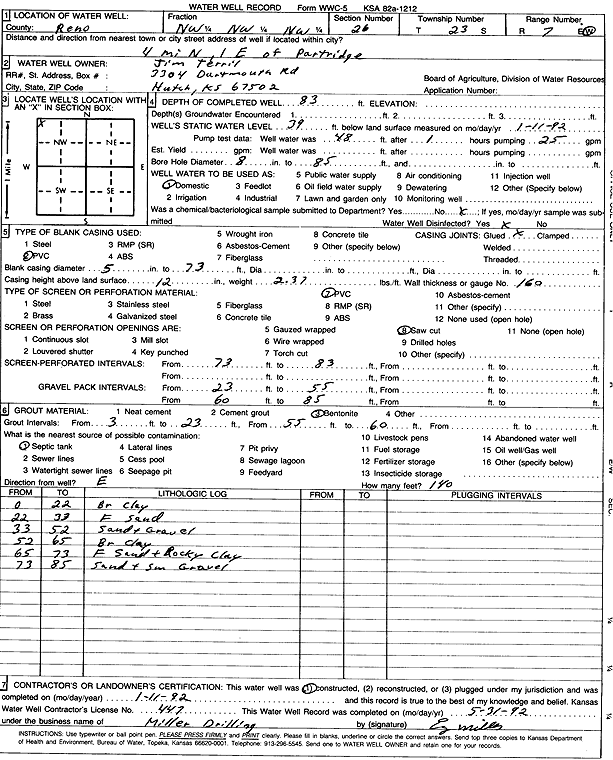 WATER WELL RECORD Form WWC-5 KSA 82a-1212
1 LOCATION OF WATER WELL: Fraction Section Number Township Number Range Number
County: Reno NW ¼ NW ¼ NW ¼ 26 T 23 S R 7 E/W
Distance and direction from nearest town or city street address of well if located within city?
4 mi N 1 E of Partridge
2 WATER WELL OWNER: Jim Terril
RR#, St. Address, Box # : 3304 Dartmouth Rd Board of Agriculture, Division of Water Resources
City, State, ZIP Code : Hutch, KS 67502 Application Number:
3 LOCATE WELL'S LOCATION WITH AN "X" IN SECTION BOX:
N
X
NW NE
W E
SW SE
S
1 Mile
4 DEPTH OF COMPLETED WELL 83 ft. ELEVATION:
Depth(s) Groundwater Encountered 1. ft. 2. ft. 3. ft.
WELL'S STATIC WATER LEVEL 39 ft. below land surface measured on mo/day/yr 1-11-92
Pump test data: Well water was 48 ft. after 1 hours pumping 25 gpm
Est. Yield gpm: Well water was ft. after hours pumping gpm
Bore Hole Diameter 8 in. to 85 ft., and in. to ft.
WELL WATER TO BE USED AS: 5 Public water supply 8 Air conditioning 11 Injection well
1 Domestic 3 Feedlot 6 Oil field water supply 9 Dewatering 12 Other (Specify below)
2 Irrigation 4 Industrial 7 Lawn and garden only 10 Monitoring well
Was a chemical/bacteriological sample submitted to Department? Yes No X; If yes, mo/day/yr sample was sub-
mitted Water Well Disinfected? Yes X No
5 TYPE OF BLANK CASING USED: 5 Wrought iron 8 Concrete tile CASING JOINTS: Glued X Clamped
1 Steel 3 RMP (SR) 6 Asbestos-Cement 9 Other (specify below) Welded
2 PVC 4 ABS 7 Fiberglass Threaded
Blank casing diameter 5 in. to 73 ft., Dia in. to ft., Dia in. to ft.
Casing height above land surface 12 in., weight 2.37 lbs./ft. Wall thickness or gauge No. 160
TYPE OF SCREEN OR PERFORATION MATERIAL: 7 PVC 10 Asbestos-cement
1 Steel 3 Stainless steel 5 Fiberglass 8 RMP (SR) 11 Other (specify)
2 Brass 4 Galvanized steel 6 Concrete tile 9 ABS 12 None used (open hole)
SCREEN OR PERFORATION OPENINGS ARE: 5 Gauzed wrapped 8 Saw cut 11 None (open hole)
1 Continuous slot 3 Mill slot 6 Wire wrapped 9 Drilled holes
2 Louvered shutter 4 Key punched 7 Torch cut 10 Other (specify)
SCREEN-PERFORATED INTERVALS: From 73 ft. to 83 ft., From ft. to ft.
From ft. to ft., From ft. to ft.
GRAVEL PACK INTERVALS: From 23 ft. to 55 ft., From ft. to ft.
From 60 ft. to 85 ft., From ft. to ft.
6 GROUT MATERIAL: 1 Neat cement 2 Cement grout 3 Bentonite 4 Other
Grout Intervals: From 3 ft. to 23 ft., From 55 ft. to 60 ft., From ft. to ft.
What is the nearest source of possible contamination: 10 Livestock pens 14 Abandoned water well
1 Septic tank 4 Lateral lines 7 Pit privy 11 Fuel storage 15 Oil well/Gas well
2 Sewer lines 5 Cess pool 8 Sewage lagoon 12 Fertilizer storage 16 Other (specify below)
3 Watertight sewer lines 6 Seepage pit 9 Feedyard 13 Insecticide storage
Direction from well? E How many feet? 140
FROM TO LITHOLOGIC LOG FROM TO PLUGGING INTERVALS
0 22 Br Clay
22 33 F Sand
33 52 Sand + Gravel
52 65 Br Clay
65 73 F Sand + Rocky Clay
73 85 Sand + Sm Gravel
7 CONTRACTOR'S OR LANDOWNER'S CERTIFICATION: This water well was (1) constructed, (2) reconstructed, or (3) plugged under my jurisdiction and was
completed on (mo/day/year) 1-11-92 and this record is true to the best of my knowledge and belief. Kansas
Water Well Contractor's License No. 447 This Water Well Record was completed on (mo/day/yr) 5-31-92
under the business name of Miller Drilling by (signature)
INSTRUCTIONS: Use typewriter or ball point pen. PLEASE PRESS FIRMLY and PRINT clearly. Please fill in blanks, underline or circle the correct answers. Send top three copies to Kansas Department
of Health and Environment, Bureau of Water, Topeka, Kansas 66620-0001. Telephone: 913-296-5545. Send one to WATER WELL OWNER and retain one for your records.